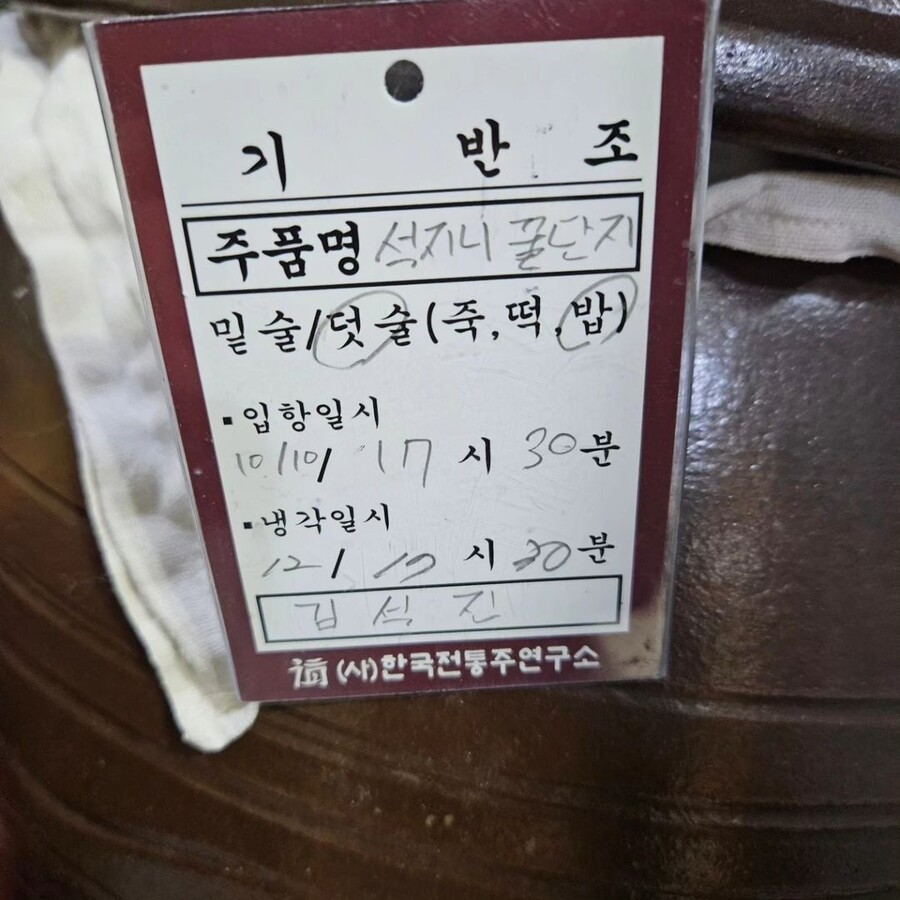 기 반 조
주품명 석지니 꿀단지
밑술/덧술(죽,떡,밥)
▪입항일시
10/10/ 17시 30분
▪냉각일시
12/ 10시 30분
김석진
(사)한국전통주연구소